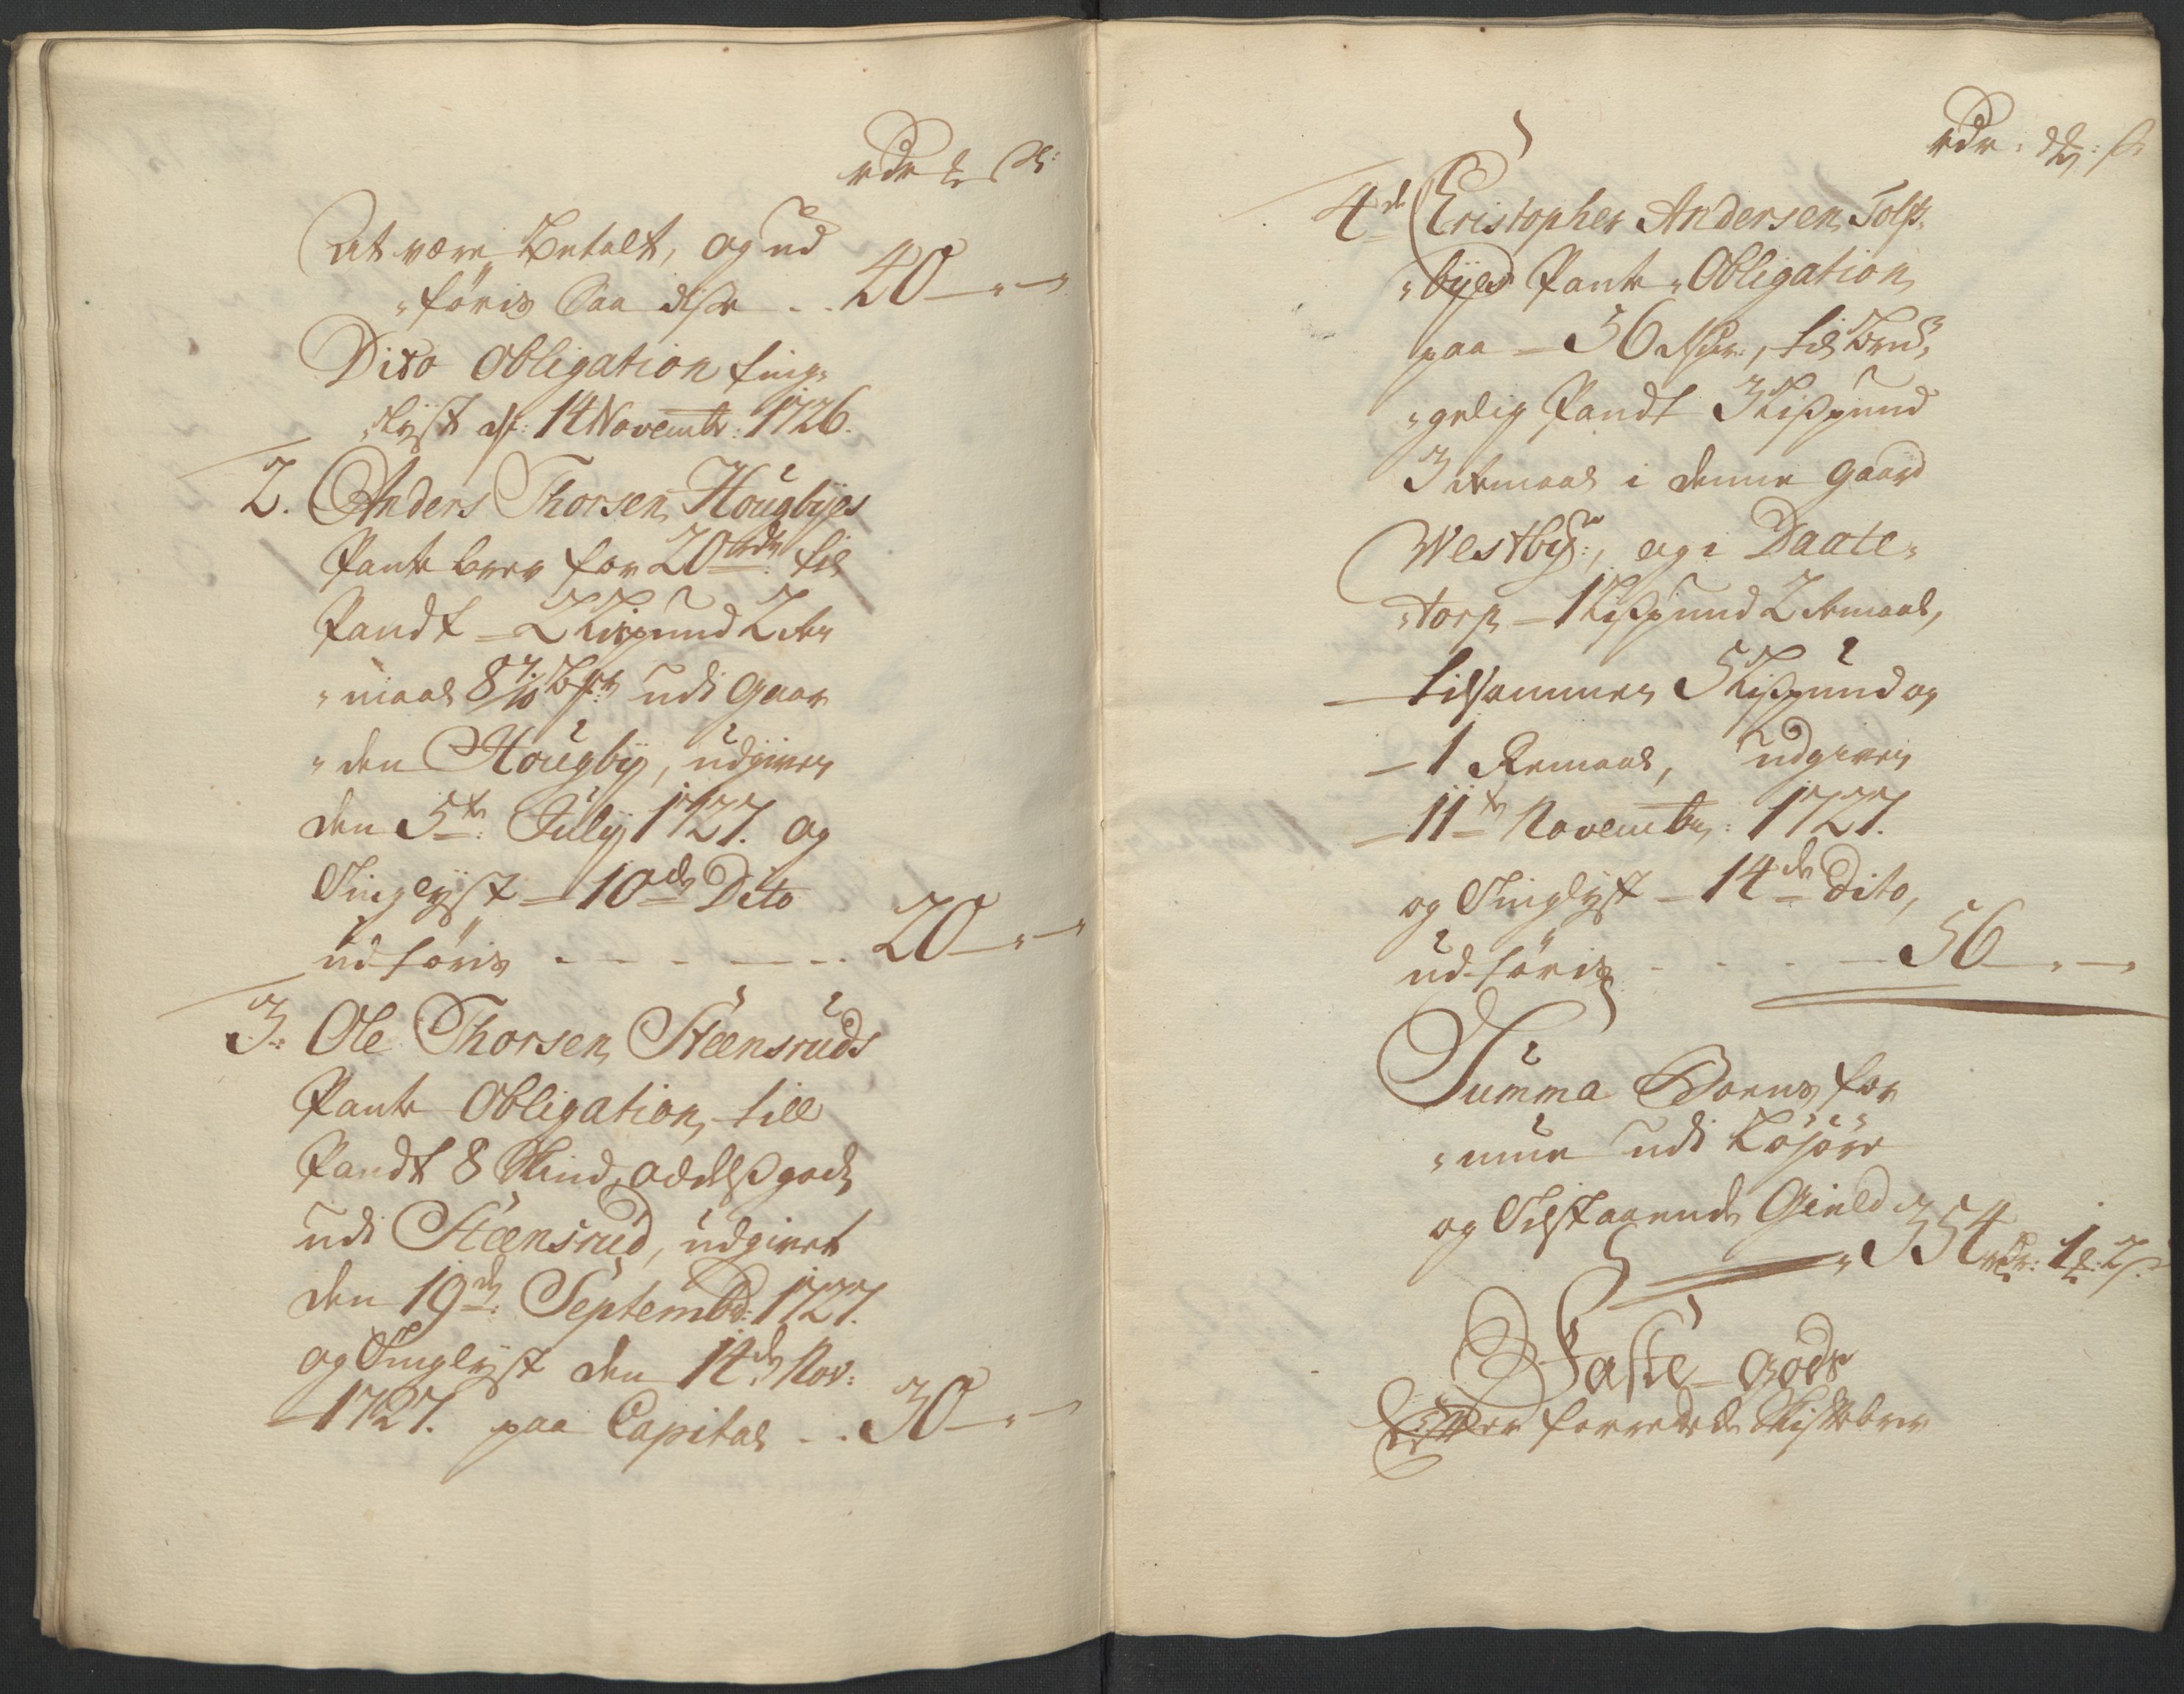 rdr ß
At være Betalt, og ud
"føris Saa disse - - 40 - " -
Dito Obligation ting=
"lyst d: 14 Novembr: 1726.
2. Anders Thorsen Hougbyes
Pante brev for 20 rdr til
Pandt - 2 Lispund 2 Re
"maal 8 7/10 udi Gaar
"den Hougby, udgiven
den 5te July 1727. og
Tinglyst - 10de Dito
udføris - - - - - - 20 - " -
3: Ole Thorsen Steensruds
Pante Obligation, till
Pandt 8 Skind oddelßgods
udi Steensrud, udgivet
den 19de: Septembr: 1727.
og Tinglyst den 14de Nov:
1727. paa Capital - - 30 - " -
rdr: ß
4de Cristopher Andersen Tolfs=
"byes Pante Obligation
paa - 56 rdr, til Brug=
"gelig Pandt 3 Lißpund
3 Remaal i denne Gaard
Westby:, og i Daale=
"torp - 1 Lißpund 2 Remaal,
- tilsammen 5 Lißpund og
- 1 Remaal, udgiven
- 11te Novembr: 1727.
og Tinglyst - 14de Dito,
udføris - - - - 56 - " -
Summa Boens for
"mue udi Løsøre
og Tilstaaende Gield
" 354 rdr: 1 : 2 ß
Faste Gods
Efter forrette Skiftebrev